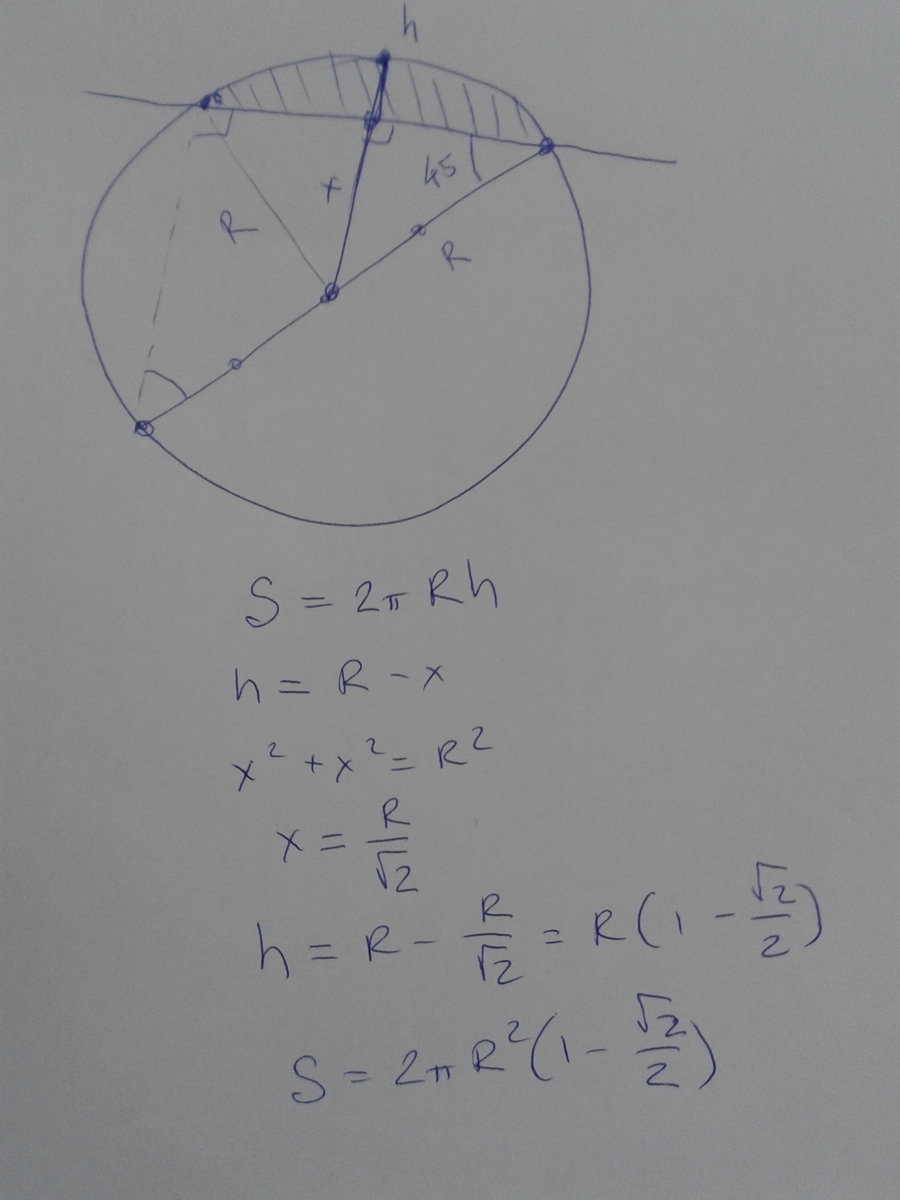 h
x
45
R
R
S = 2π Rh
h = R - x
x² + x² = R²
x = R/√2
h = R - R/√2 = R(1 - √2/2)
S = 2πR²(1 - √2/2)